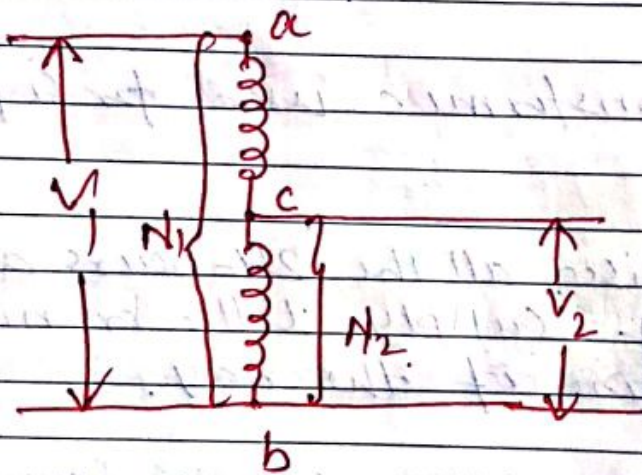 a
V1
N1
c
N2
V2
b